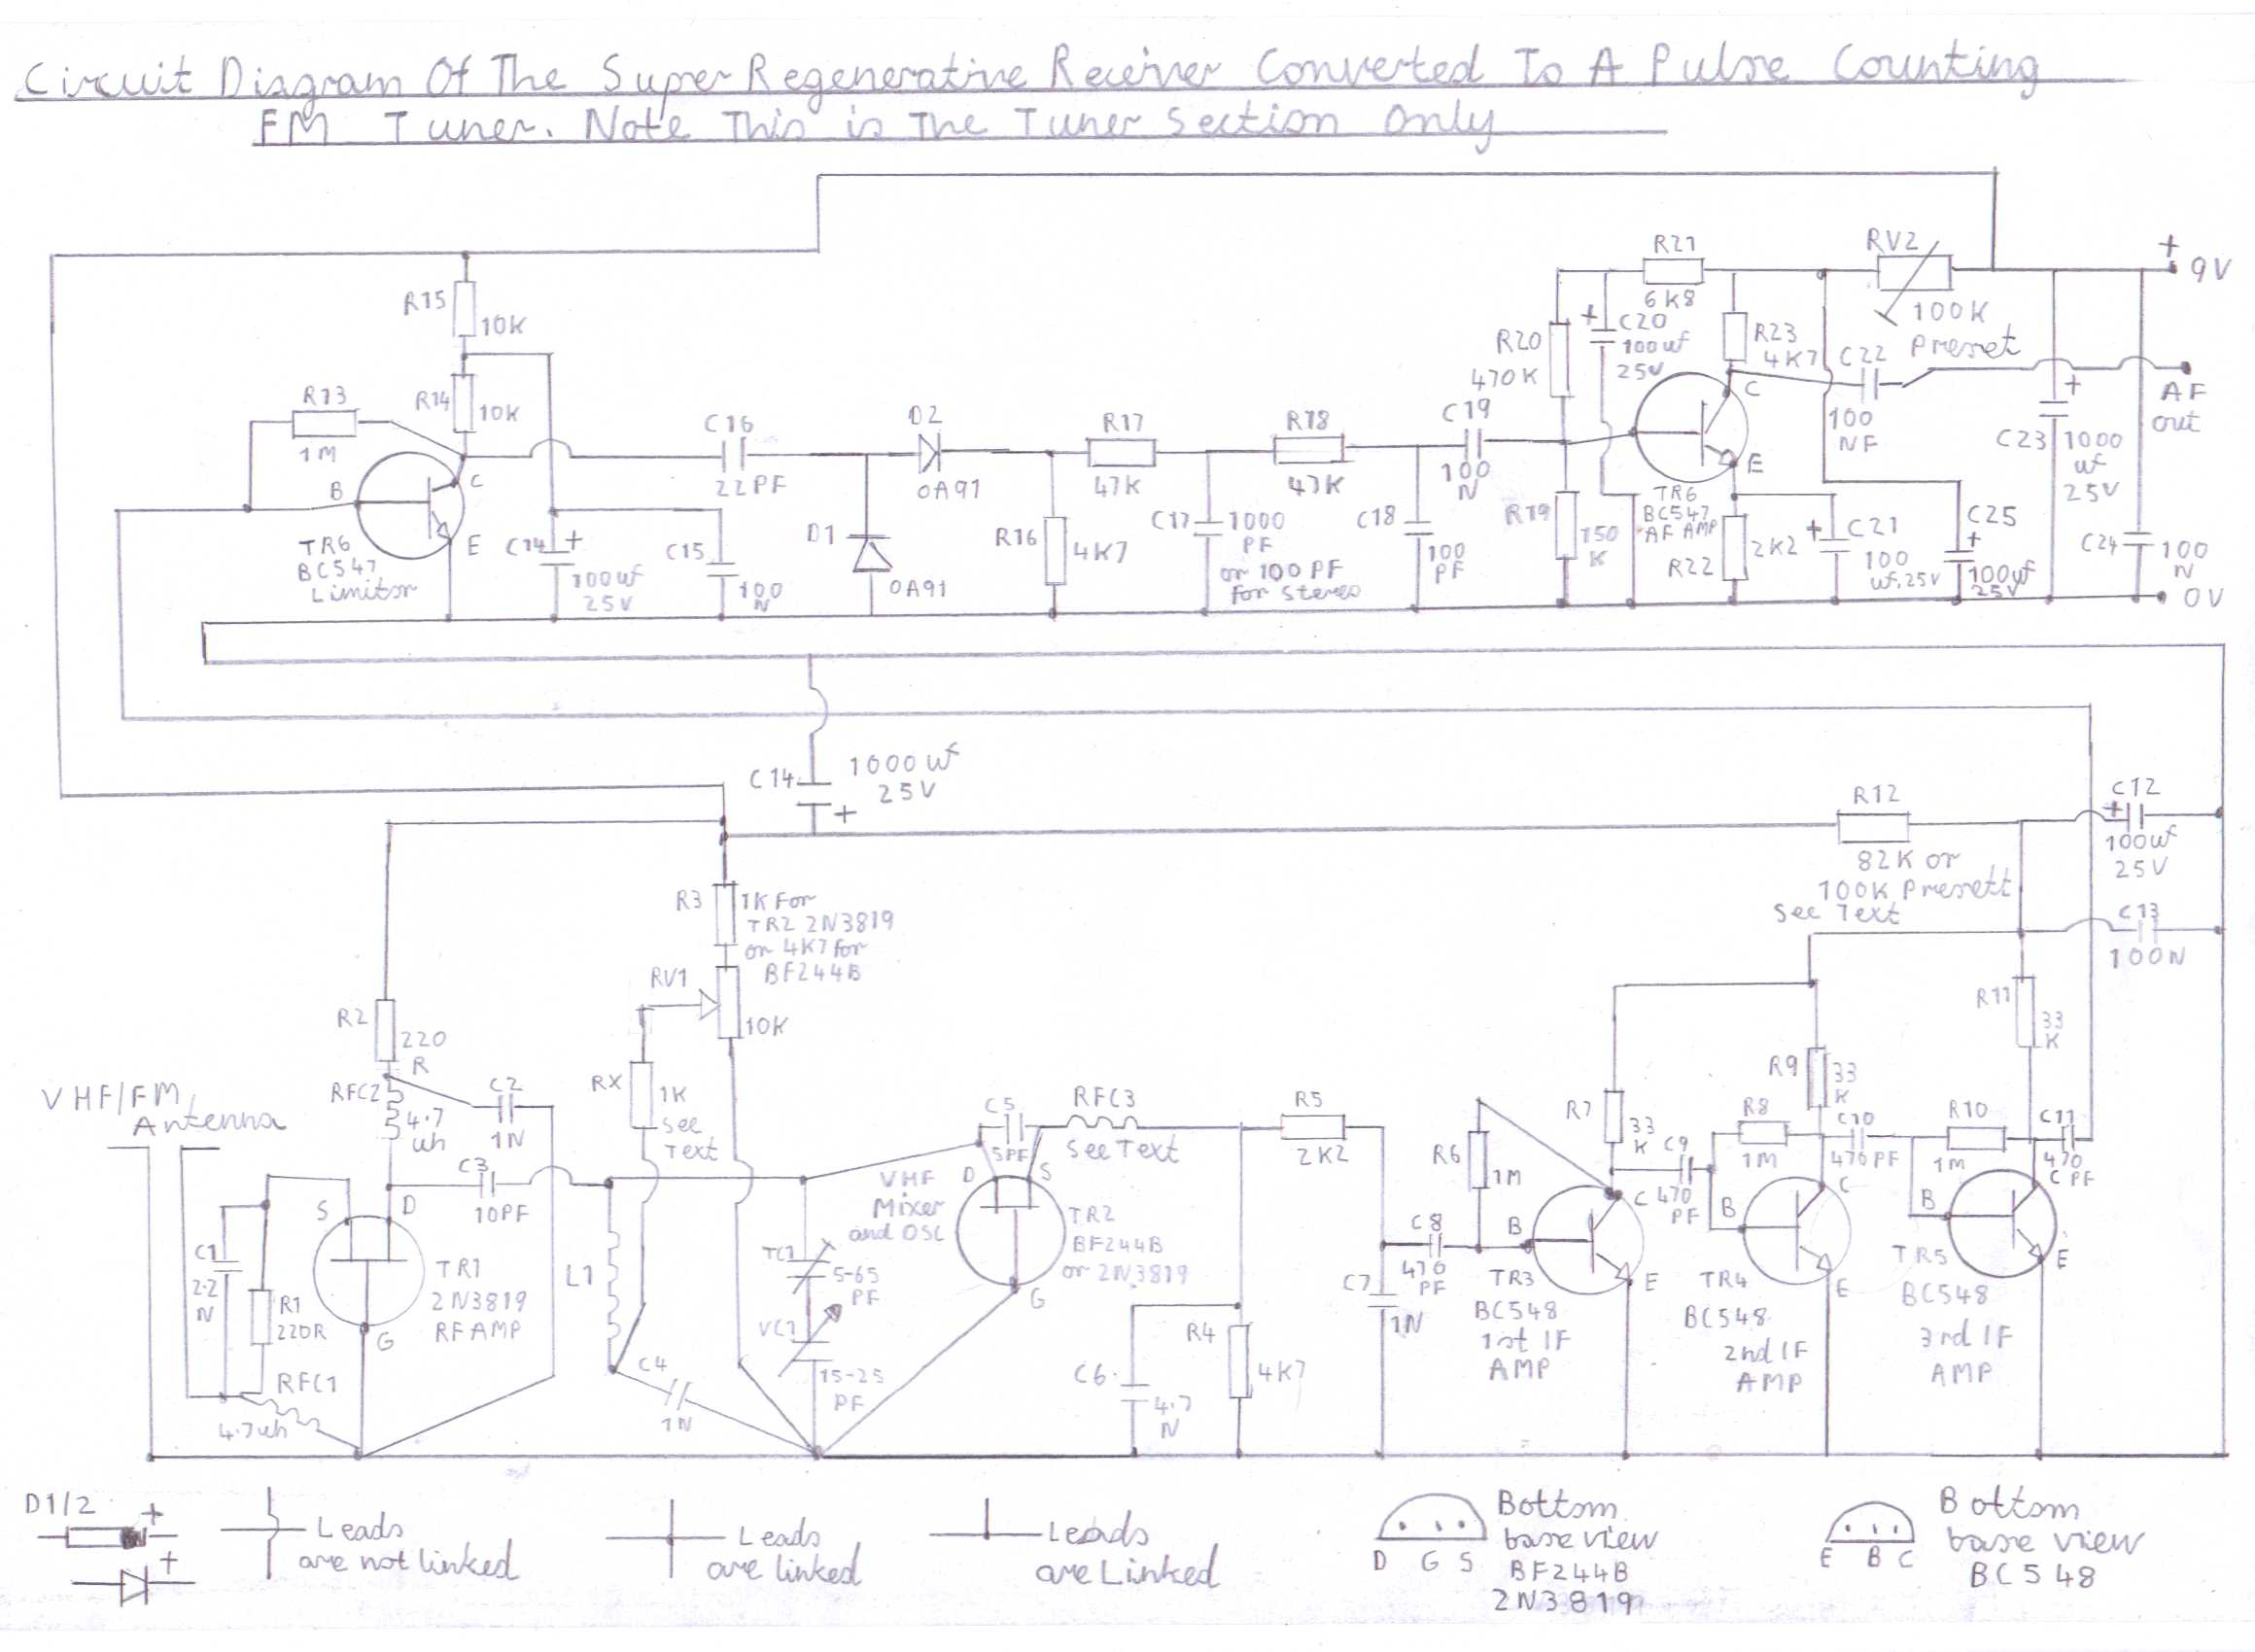 Circuit Diagram Of The Super Regenerative Receiver Converted To A Pulse Counting
FM Tuner. Note This is The Tuner Section Only
R15
10K
R13
1M
R14
10K
B
C
E
TR6
BC547
Limitor
C14
+
100uf
25V
C15
100
N
C16
22PF
D2
OA91
D1
OA91
R16
4K7
R17
47K
C17
1000
PF
or 100PF
For Stereo
R18
47K
C18
100
PF
C19
100
N
R20
470K
R19
150
K
+
C20
100uf
25V
R21
6K8
R23
4K7
C
E
TR6
BC547
AF AMP
R22
2K2
+
C21
100
uf,25V
C22
100
NF
RV2
100K
Preset
C25
+
100uf
25V
+
C23
1000
uf
25V
C24
100
N
+
9V
AF
out
0V
C14
1000uf
25V
+
R12
82K or
100K Presett
See Text
C12
+
100uf
25V
C13
100N
R3
1K For
TR2 2N3819
or 4K7 for
BF244B
RV1
10K
RX
1K
See
Text
R2
220
R
RFC2
4.7
uh
C2
1N
C3
10PF
VHF/FM
Antenna
C1
2.2
N
R1
220R
RFC1
4.7uh
S
D
G
TR1
2N3819
RF AMP
L1
C4
1N
TC1
5-65
PF
VC1
15-25
PF
VHF
Mixer
and OSC
C5
5PF
D
S
G
TR2
BF244B
or 2N3819
RFC3
See Text
C6
4.7
N
R4
4K7
R5
2K2
C7
1N
C8
470
PF
R6
1M
R7
33
K
B
C
E
TR3
BC548
1st IF
AMP
C9
470
PF
R8
1M
R9
33
K
B
C
E
TR4
BC548
2nd IF
AMP
C10
470PF
R10
1M
R11
33
K
C11
470
PF
B
C
E
TR5
BC548
3rd IF
AMP
D1/2
+
+
Leads
are not linked
Leads
are linked
Leads
are Linked
D G S
Bottom
base view
BF244B
2N3819
E B C
Bottom
base view
BC548